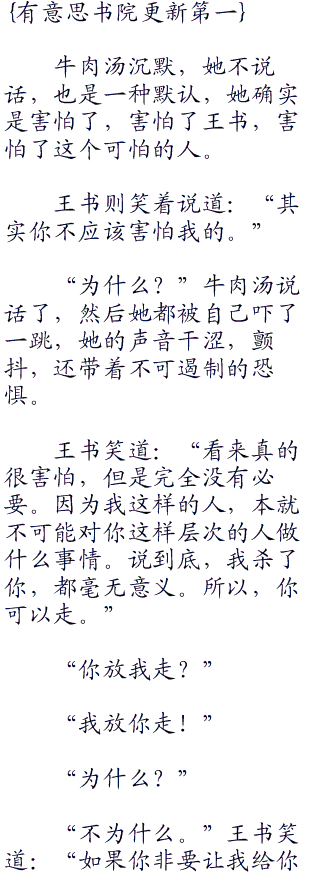 {有意思书院更新第一}
牛肉汤沉默，她不说
话，也是一种默认，她确实
是害怕了，害怕了王书，害
怕了这个可怕的人。
王书则笑着说道：“其
实你不应该害怕我的。”
“为什么？”牛肉汤说
话了，然后她都被自己吓了
一跳，她的声音干涩，颤
抖，还带着不可遏制的恐
惧。
王书笑道：“看来真的
很害怕，但是完全没有必
要。因为我这样的人，本就
不可能对你这样层次的人做
什么事情。说到底，我杀了
你，都毫无意义。所以，你
可以走。”
“你放我走？”
“我放你走！”
“为什么？”
“不为什么。”王书笑
道：“如果你非要让我给你